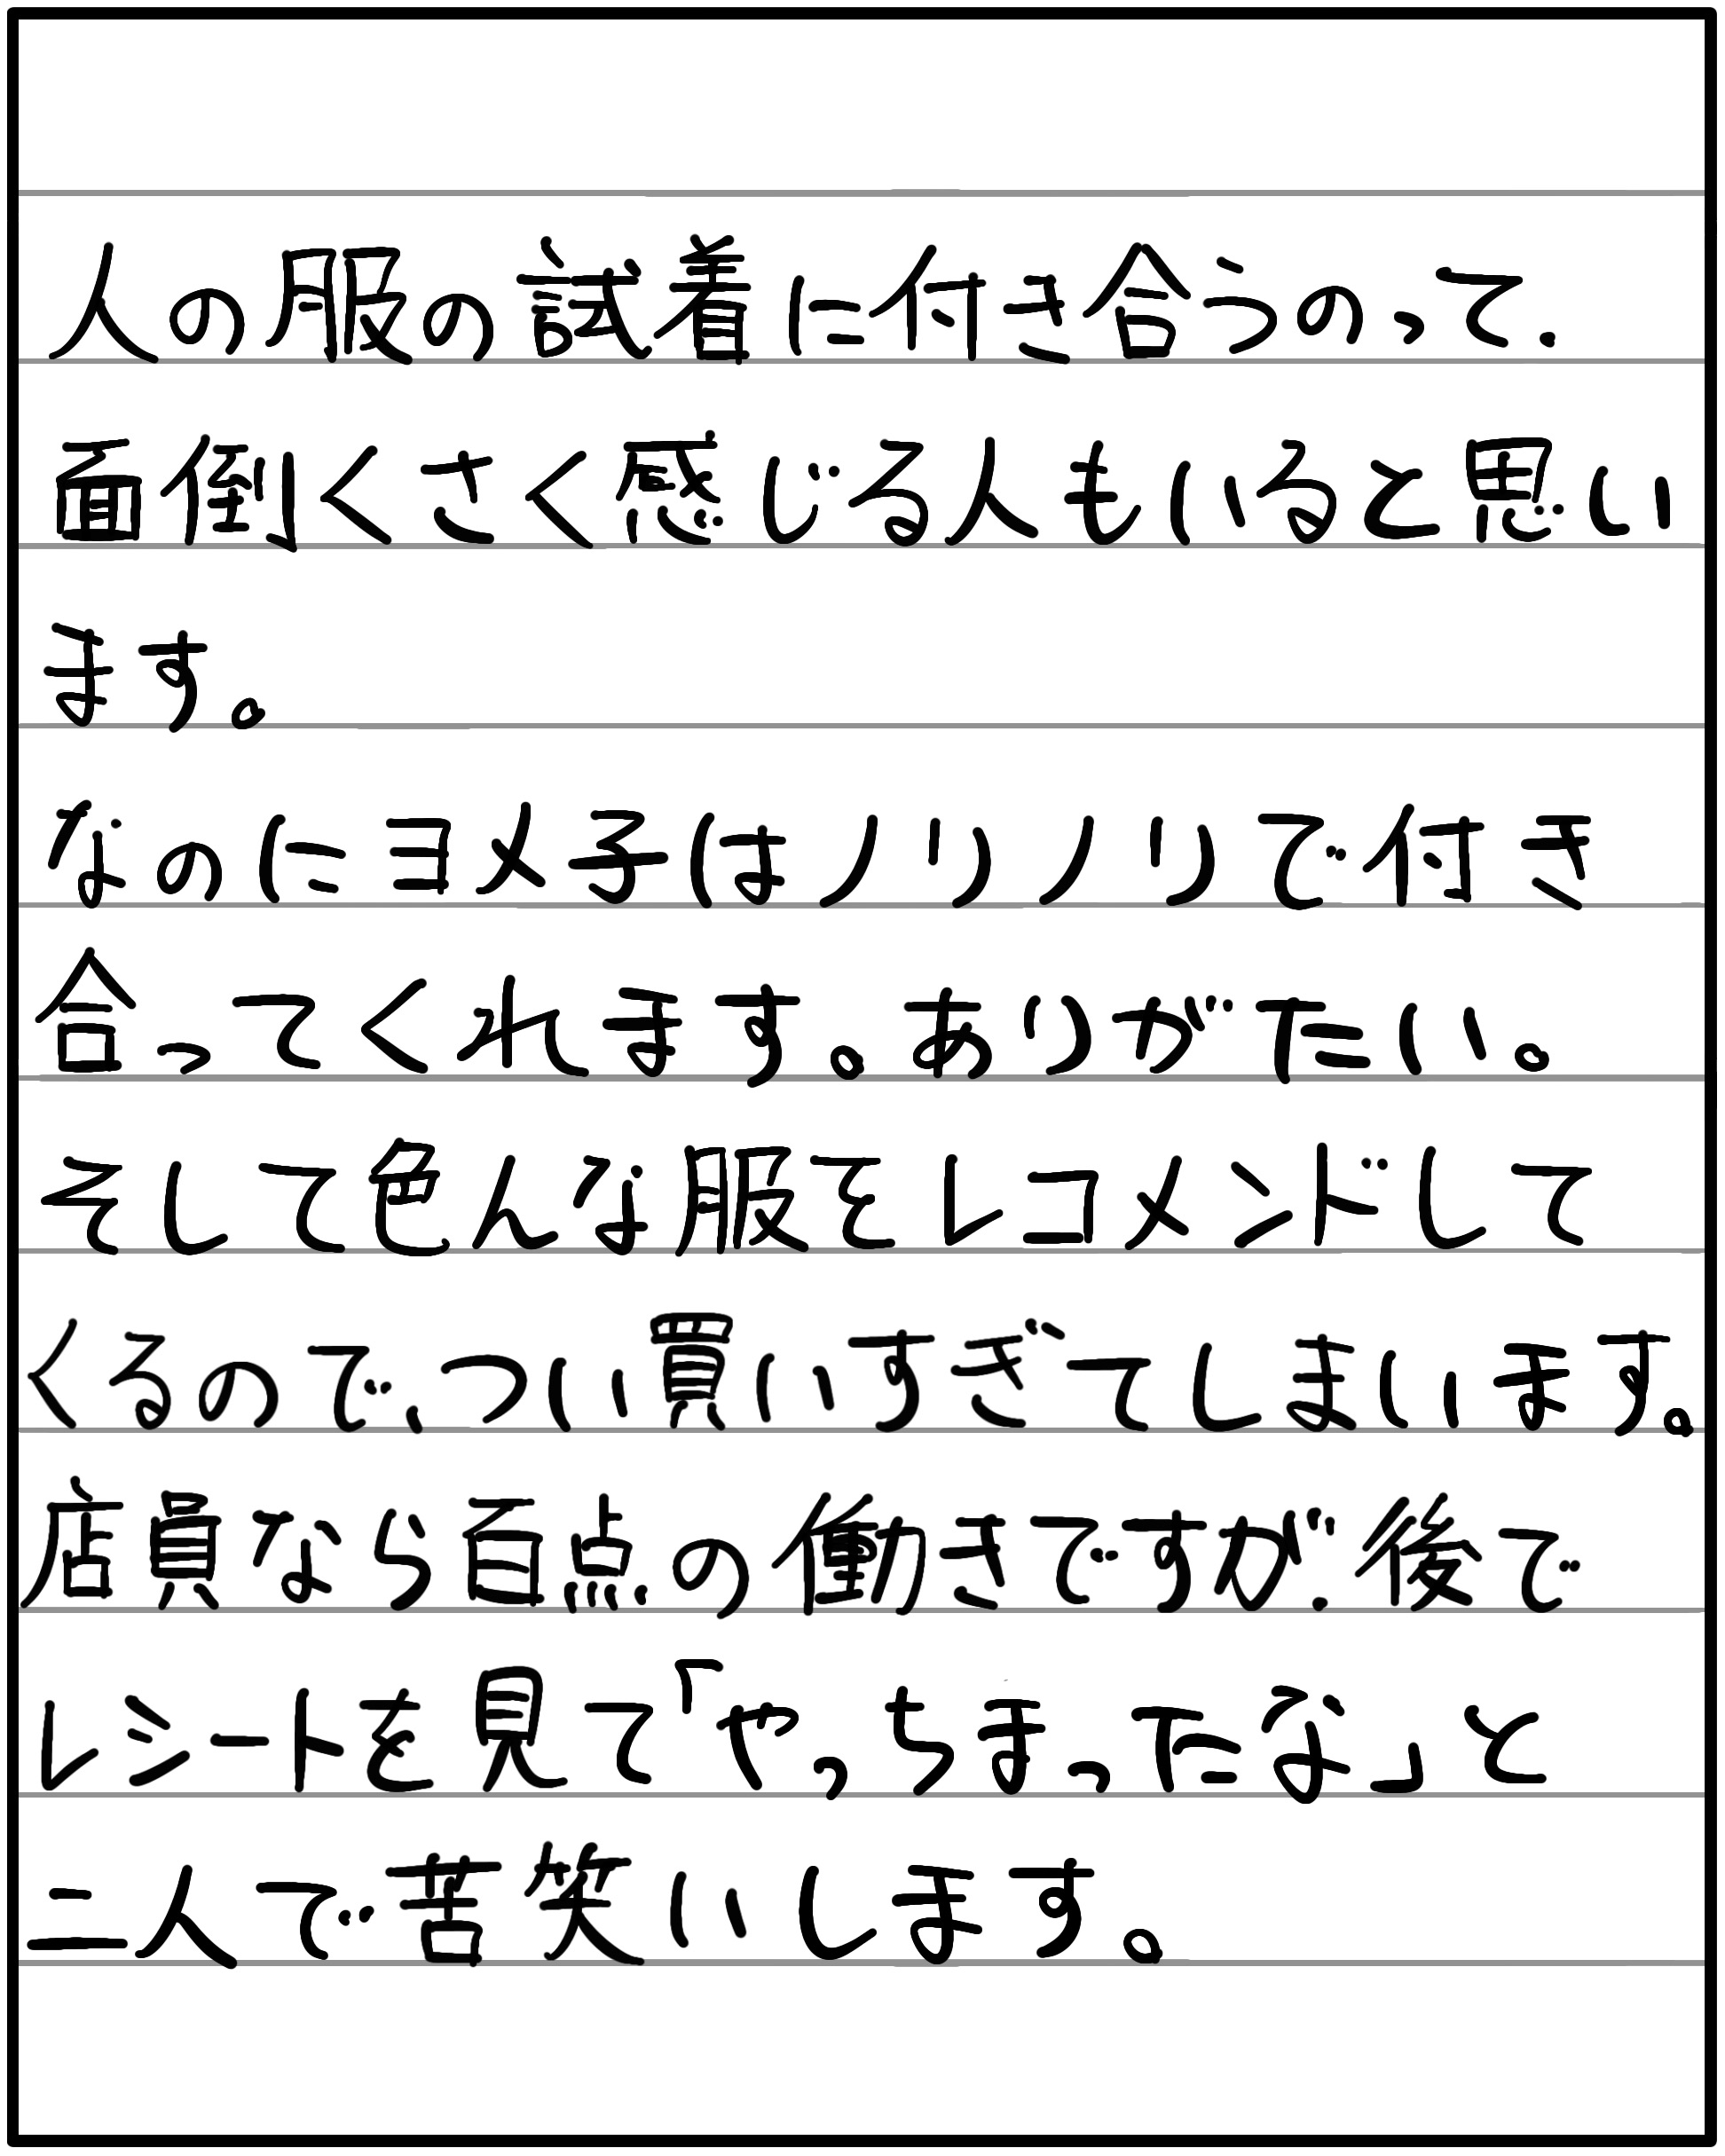 人の服の試着に付き合うのって、
面倒くさく感じる人もいると思い
ます。
なのにヨメ子はノリノリで付き
合ってくれます。ありがたい。
そして色んな服をレコメンドして
くるので、つい買いすぎてしまいます。
店員なら百点の働きですが、後で
レシートを見て「やっちまったな」と
二人で苦笑いします。